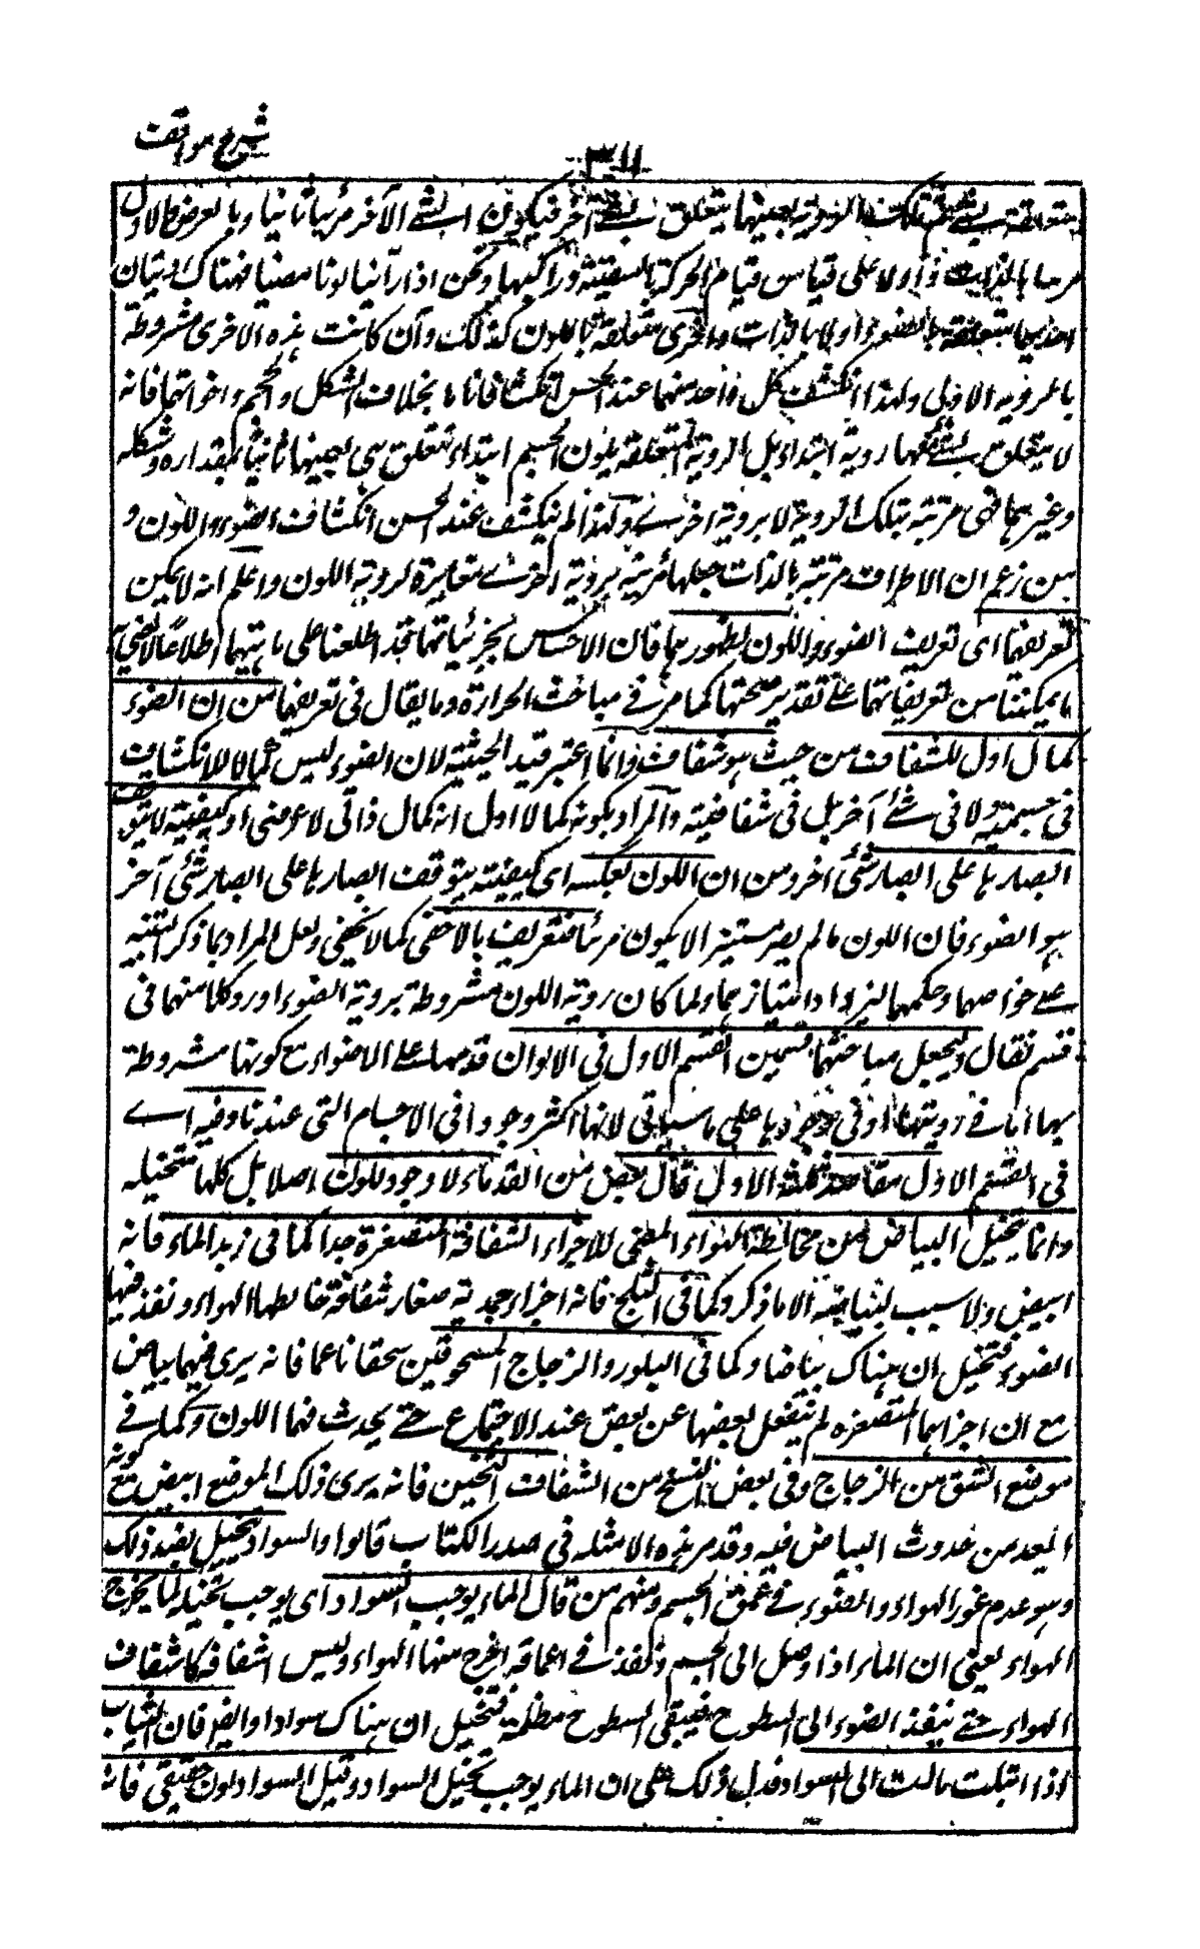 شرح مواقف
٣١١
متعلقة بشئ ثم تلك الرؤية بعينها يتعلق بشئ آخر فيكون الشئ الآخر مرئيا ثانيا وبالعرض والاول
مرئيا بالذات واولا على قياس قيام الحركة بالسفينة وراكبها ونحن اذا رأينا لونا مضيئا فهناك رؤيتان
احديهما متعلقة بالضوء اولا وبالذات والاخرى متعلقة باللون كذلك وان كانت هذه الاخرى مشروطة
بالرؤية الاولى ولهذا انكشف كل واحد منهما عند الحس انكشافا تاما بخلاف الشكل والحجم واخواتهما فانه
لا يتعلق بشئ منها رؤية ابتداء بل الرؤية المتعلقة بلون الجسم ابتداء تتعلق هى بعينها ثانيا بمقداره وشكله
وغيرهما فهى مرئية بتلك الرؤية لا برؤية اخرى ولهذا لم ينكشف عند الحس انكشاف الضوء واللون و
من زعم ان الاطراف مرئية بالذات جعلها مرئية برؤية اخرى مغايرة لرؤية اللون واعلم انه لا يمكن
تعريفهما اى تعريف الضوء واللون لظهورهما فان الاحساس بجزئياتهما قد اطلعنا على ماهيتهما اطلاعا لا يفى به
ما يمكننا من تعريفاتهما على تقدير صحتها كما مر فى مباحث الحرارة وما يقال فى تعريفهما من ان الضوء
كمال اول للشفاف من حيث هو شفاف وانما اعتبر قيد الحيثية لان الضوء ليس كمالا للشفاف
فى جسميته ولا فى شئ آخر بل فى شفافيته والمراد بكونه كمالا اول انه كمال ذاتى لا عرضى او كيفية لا يتوقف
ابصارها على ابصار شئ آخر ومن ان اللون بعكسه اى كيفية يتوقف ابصارها على ابصار شئ آخر
هو الضوء فان اللون ما لم يصر مستنيرا لا يكون مرئيا فتعريف بالاخفى كما لا يخفى ولعل المراد بما ذكر التنبيه
على خواصهما وحكمهما ليزداد امتيازهما ولما كان رؤية اللون مشروطة برؤية الضوء اورد كلا منهما فى
قسم فقال وليجعل مباحثهما قسمين القسم الاول فى الالوان قدمها على الاضواء مع كونها مشروطة
بها اما فى رؤيتها او فى وجودها على ما سيأتى لانها اكثر وجودا فى الاجسام التى عندنا وفيه اى
فى القسم الاول مقاصد ثلثة الاول قال بعض من القدماء لا وجود للون اصلا بل كلها متخيلة
وانما يتخيل البياض من مخالطة الهواء المضئ للاجزاء الشفافة المتصغرة جدا كما فى زبد الماء فانه
ابيض ولا سبب لبياضه الا ما ذكر وكما فى الثلج فانه اجزاء جمدية صغار شفافة خالطها الهواء ونفذ فيها
الضوء فيتخيل ان هناك بياضا وكما فى البلور والزجاج المسحوقين سحقا ناعما فانه يرى فيهما بياض
مع ان اجزاءهما المتصغرة لم ينفعل بعضها عن بعض عند الاجتماع حتى يحدث فيهما اللون وكما فى
موضع الشق من الزجاج وفى بعض النسخ من الشفاف الثخين فانه يرى ذلك الموضع ابيض مع كونه
ابعد من حدوث البياض فيه وقد مر هذه الامثلة فى صدر الكتاب قالوا والسواد يتخيل بضد ذلك
وهو عدم غور الهواء والضوء فى عمق الجسم ومنهم من قال الماء يوجب السواد اى يوجب تخيله لما يخرج
الهواء يعنى ان الماء اذا وصل الى الجسم ونفذ فى اعماقه اخرج منها الهواء وليس اشفافه كاشفاف
الهواء حتى ينفذ الضوء الى السطوح فيبقى السطوح مظلمة فيتخيل ان هناك سوادا وايضا فان الثياب
اذا ابتلت مالت الى السواد فدل ذلك على ان الماء يوجب تخيل السواد وقيل السواد لون حقيقى فانه